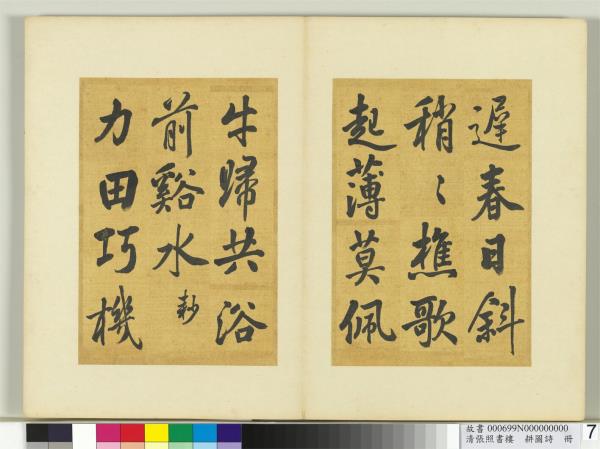 遲春日斜
稍〻樵歌
起薄莫佩
牛歸共浴
前谿水 耖
力田巧機
故書 000699N000000000
清張照書樓 耕圖詩 冊
7